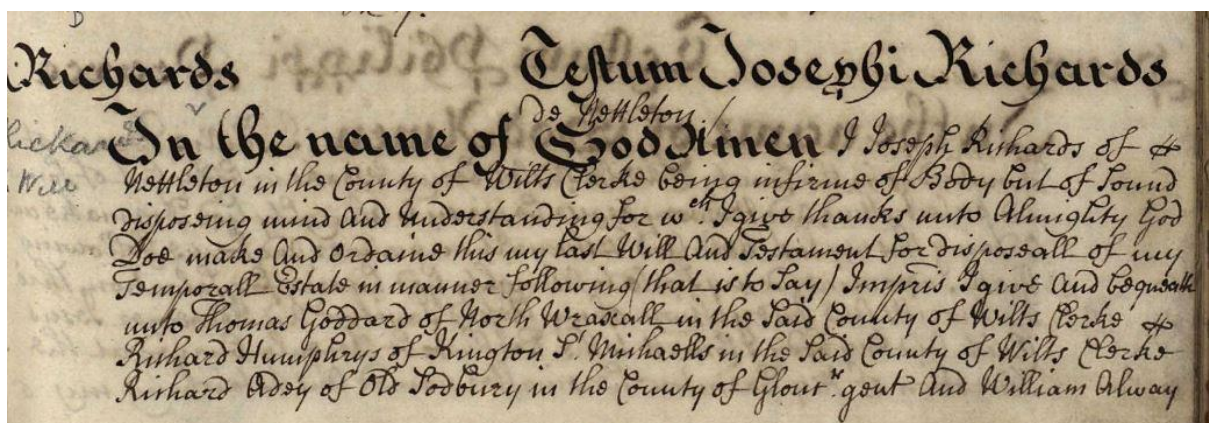 Richards Testum Josephi Richards
de Nettleton /
Rickards
Will
In the name of God Amen I Joseph Richards of
Nettleton in the County of Wilts Clerke being infirme of Body but of Sound
disposeing mind And Understanding for wch. I give thanks unto Almighty God
Doe make And Ordaine this my last Will And Testament for disposeall of my
Temporall Estate in manner following (that is to Say) Impris I give And bequeath
unto Thomas Goddard of North Wraxall in the Said County of Wilts Clerke
Richard Humphrys of Kington St. Michaells in the Said County of Wilts Clerke
Richard Adey of Old Sodbury in the County of Gloutr. gent And William Alway